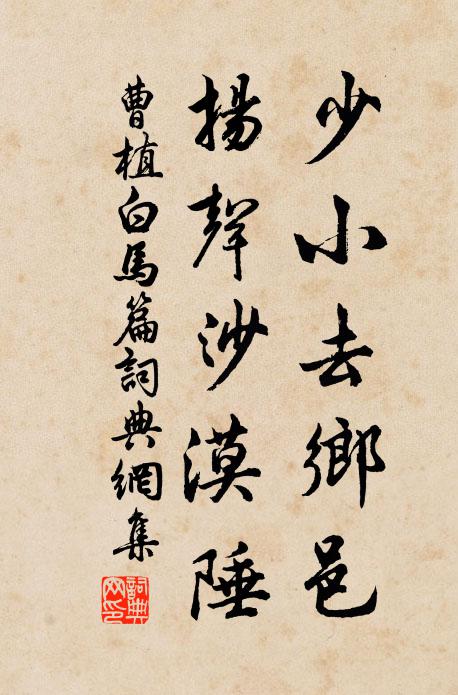 少小去鄉邑
揚聲沙漠陲
曹植白馬篇詞典網集
詞典網印